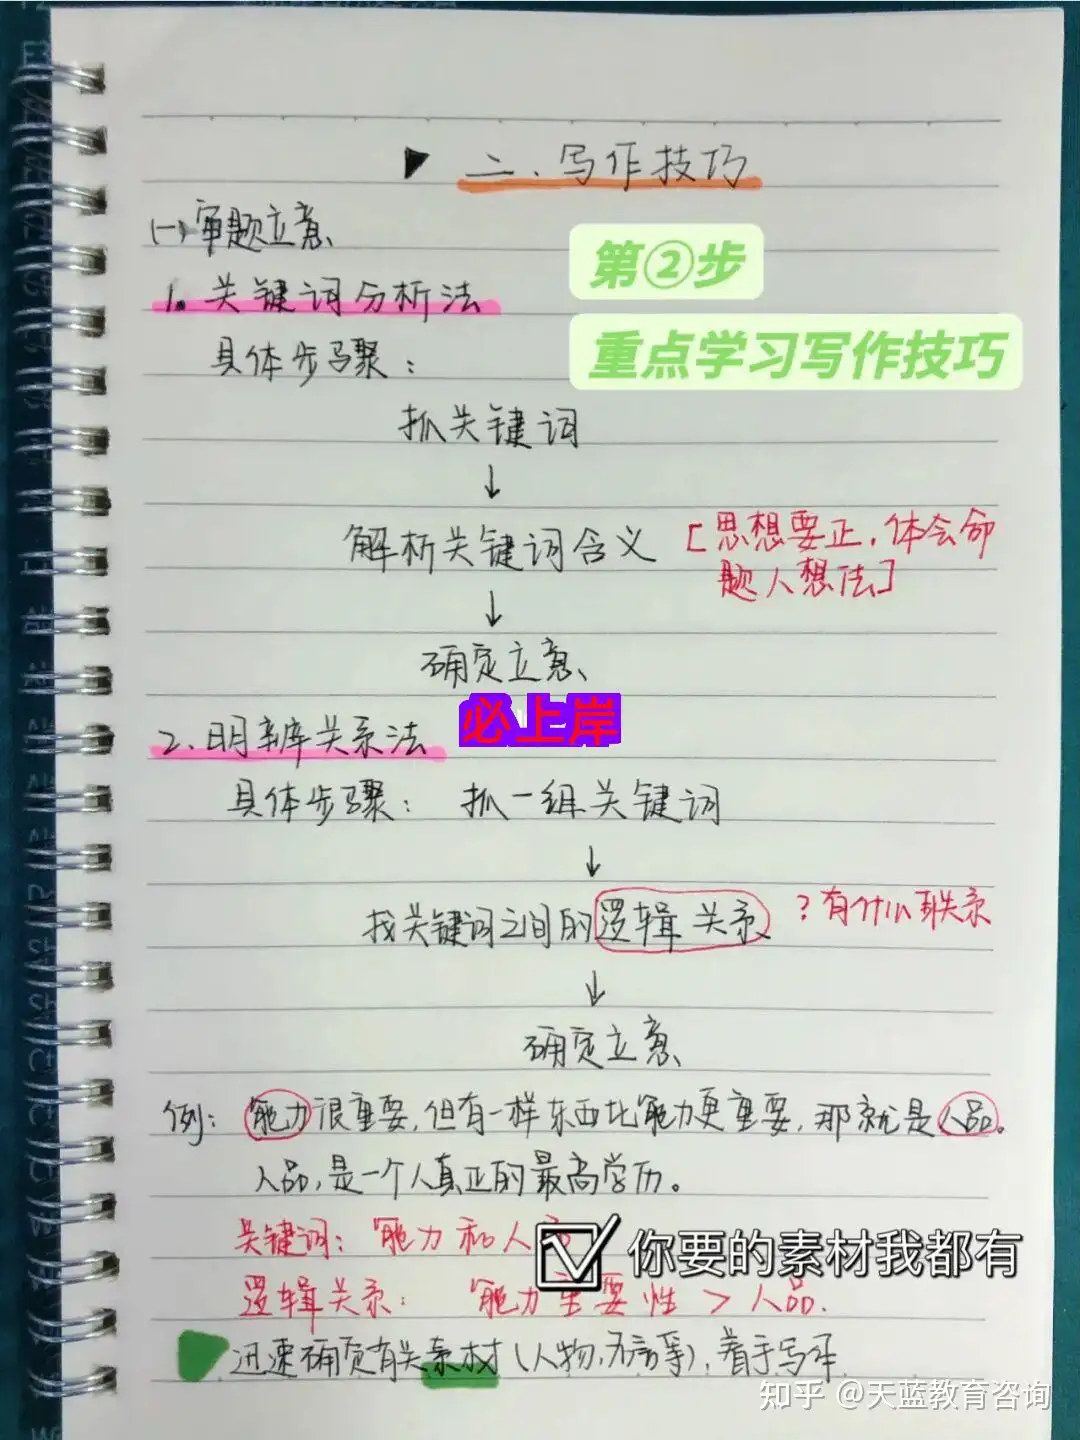 二、写作技巧
(一)审题立意
第②步
1. 关键词分析法
具体步骤：
重点学习写作技巧
抓关键词
↓
解析关键词含义 [思想要正，体会命
题人想法]
↓
确定立意
必上岸
2. 明辨关系法
具体步骤： 抓一组关键词
↓
找关键词之间的逻辑关系 ？有什么联系
↓
确定立意
例：能力很重要，但有一样东西比能力更重要，那就是人品。
人品，是一个人真正的最高学历。
关键词：能力和人
你要的素材我都有
逻辑关系： 能力重要性 > 人品.
迅速确定有关素材(人物、名言等)，着手写
知乎 @天蓝教育咨询